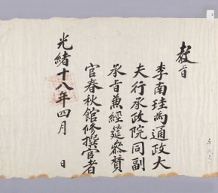 教旨
李南珪爲通政大
夫行承政院同副
承旨兼經筵參贊
官春秋館修撰官者
光緖十八年四月　日